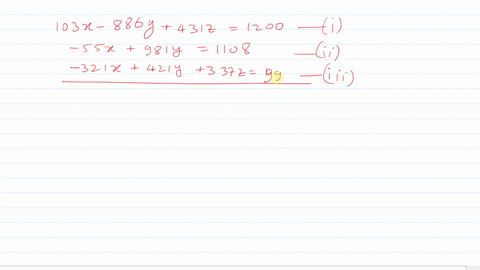 103x - 886y + 431z = 1200 —(i)
-55x + 981y = 1108 —(ii)
-321x + 421y + 337z = 99 —(iii)